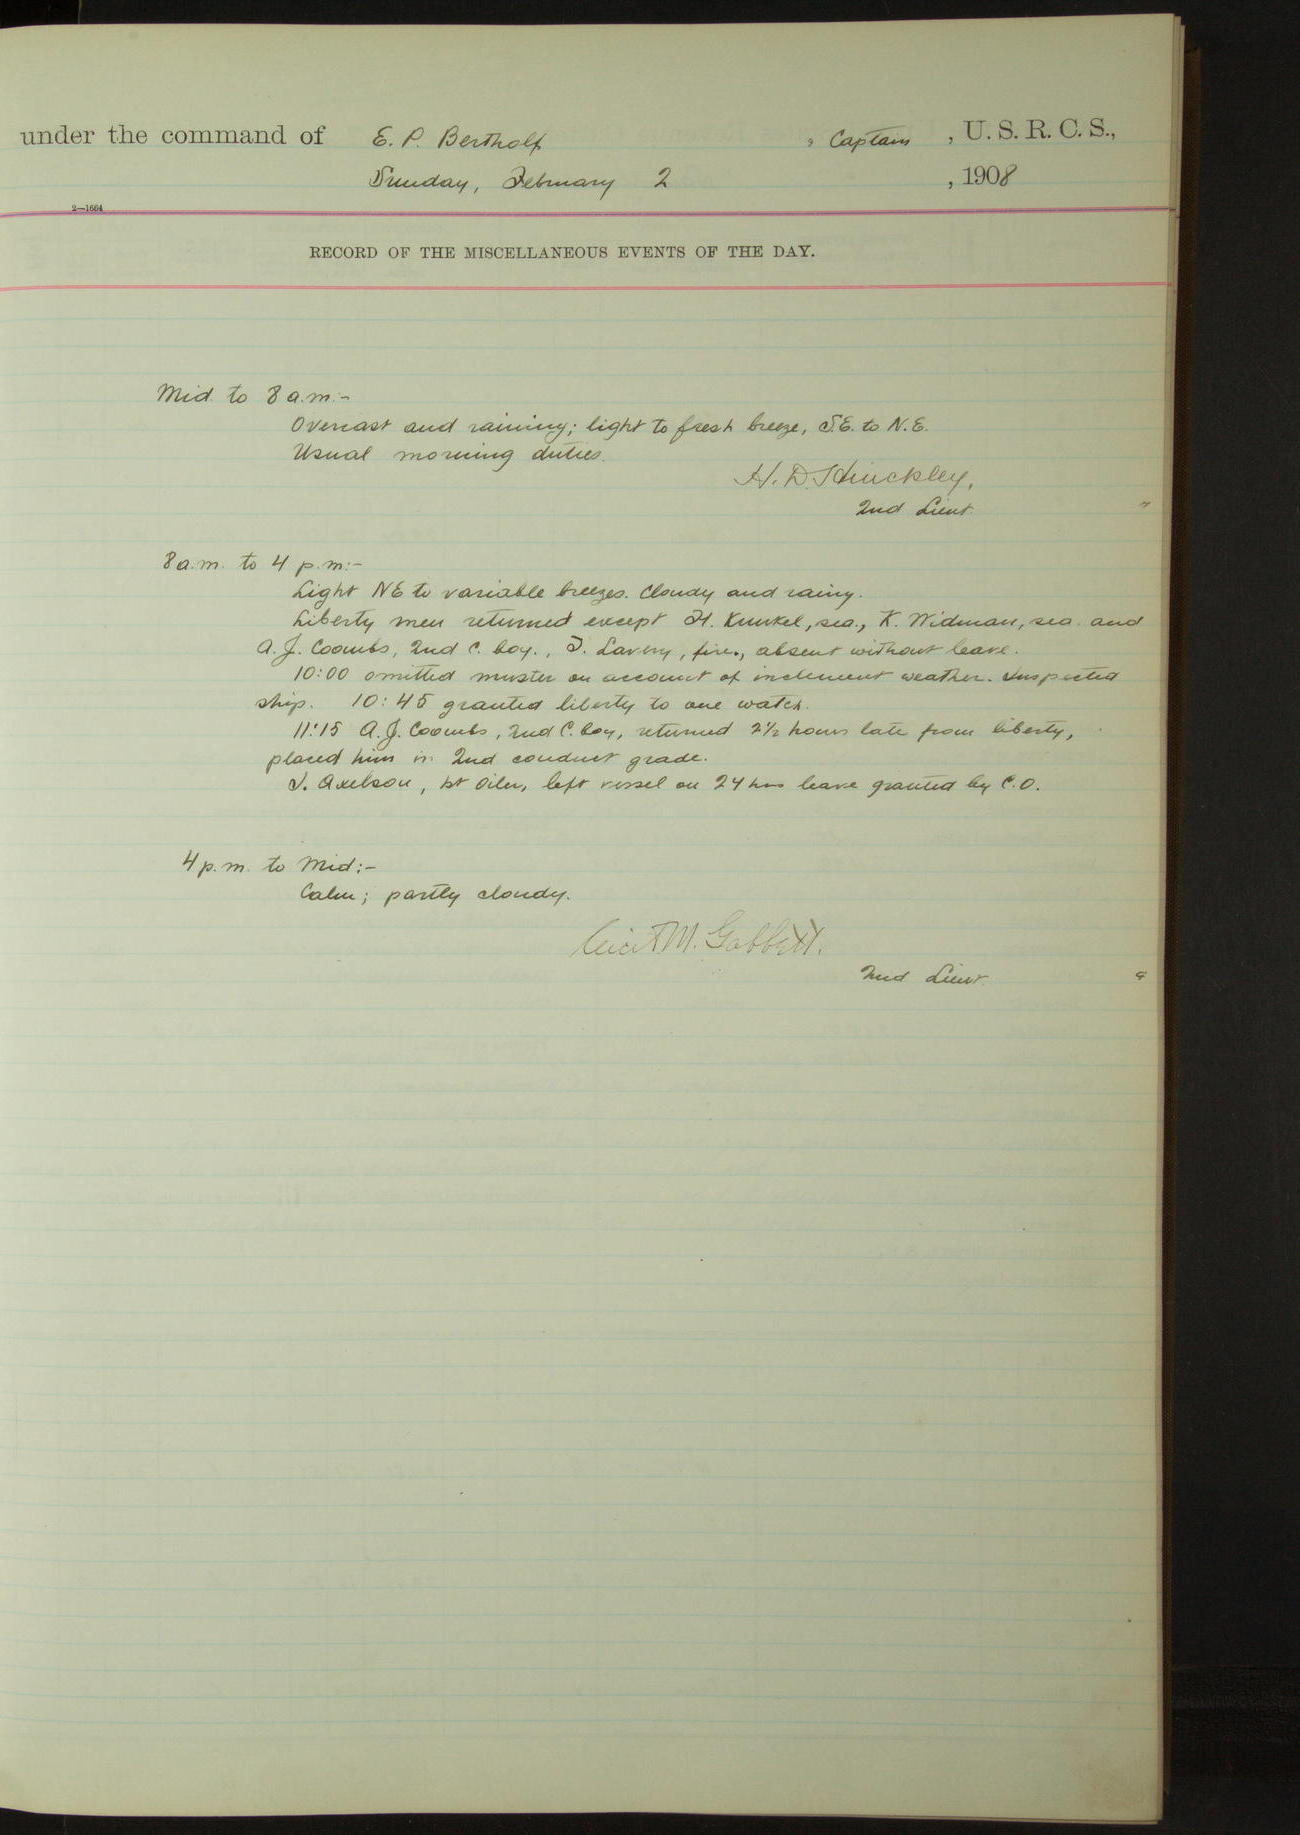 under the command of E. P. Bertholf , Captain , U. S. R. C. S.,
Sunday, February 2 , 1908
2—1664
RECORD OF THE MISCELLANEOUS EVENTS OF THE DAY.
Mid. to 8 a.m:-
Overcast and raining; light to fresh breeze, S.E. to N.E.
Usual morning duties.
H. D. Hinckley,
2nd Lieut.
8 a.m. to 4 p.m:-
Light NE to variable breezes. Cloudy and rainy.
Liberty men returned except H. Kunkel, sea., K. Widman, sea. and
A. J. Coombs, 2nd C. boy., T. Lavery, fire., absent without leave.
10:00 omitted muster on account of inclement weather. Inspected
ship. 10:45 granted liberty to one watch.
11:15 A. J. Coombs, 2nd C. boy, returned 2½ hours late from liberty,
placed him in 2nd conduct grade.
Axelson, 1st Oiler, left vessel on 24 hrs leave granted by C.O.
4 p.m. to Mid:-
Calm; partly cloudy.
M. Gabbett.
2nd Lieut.